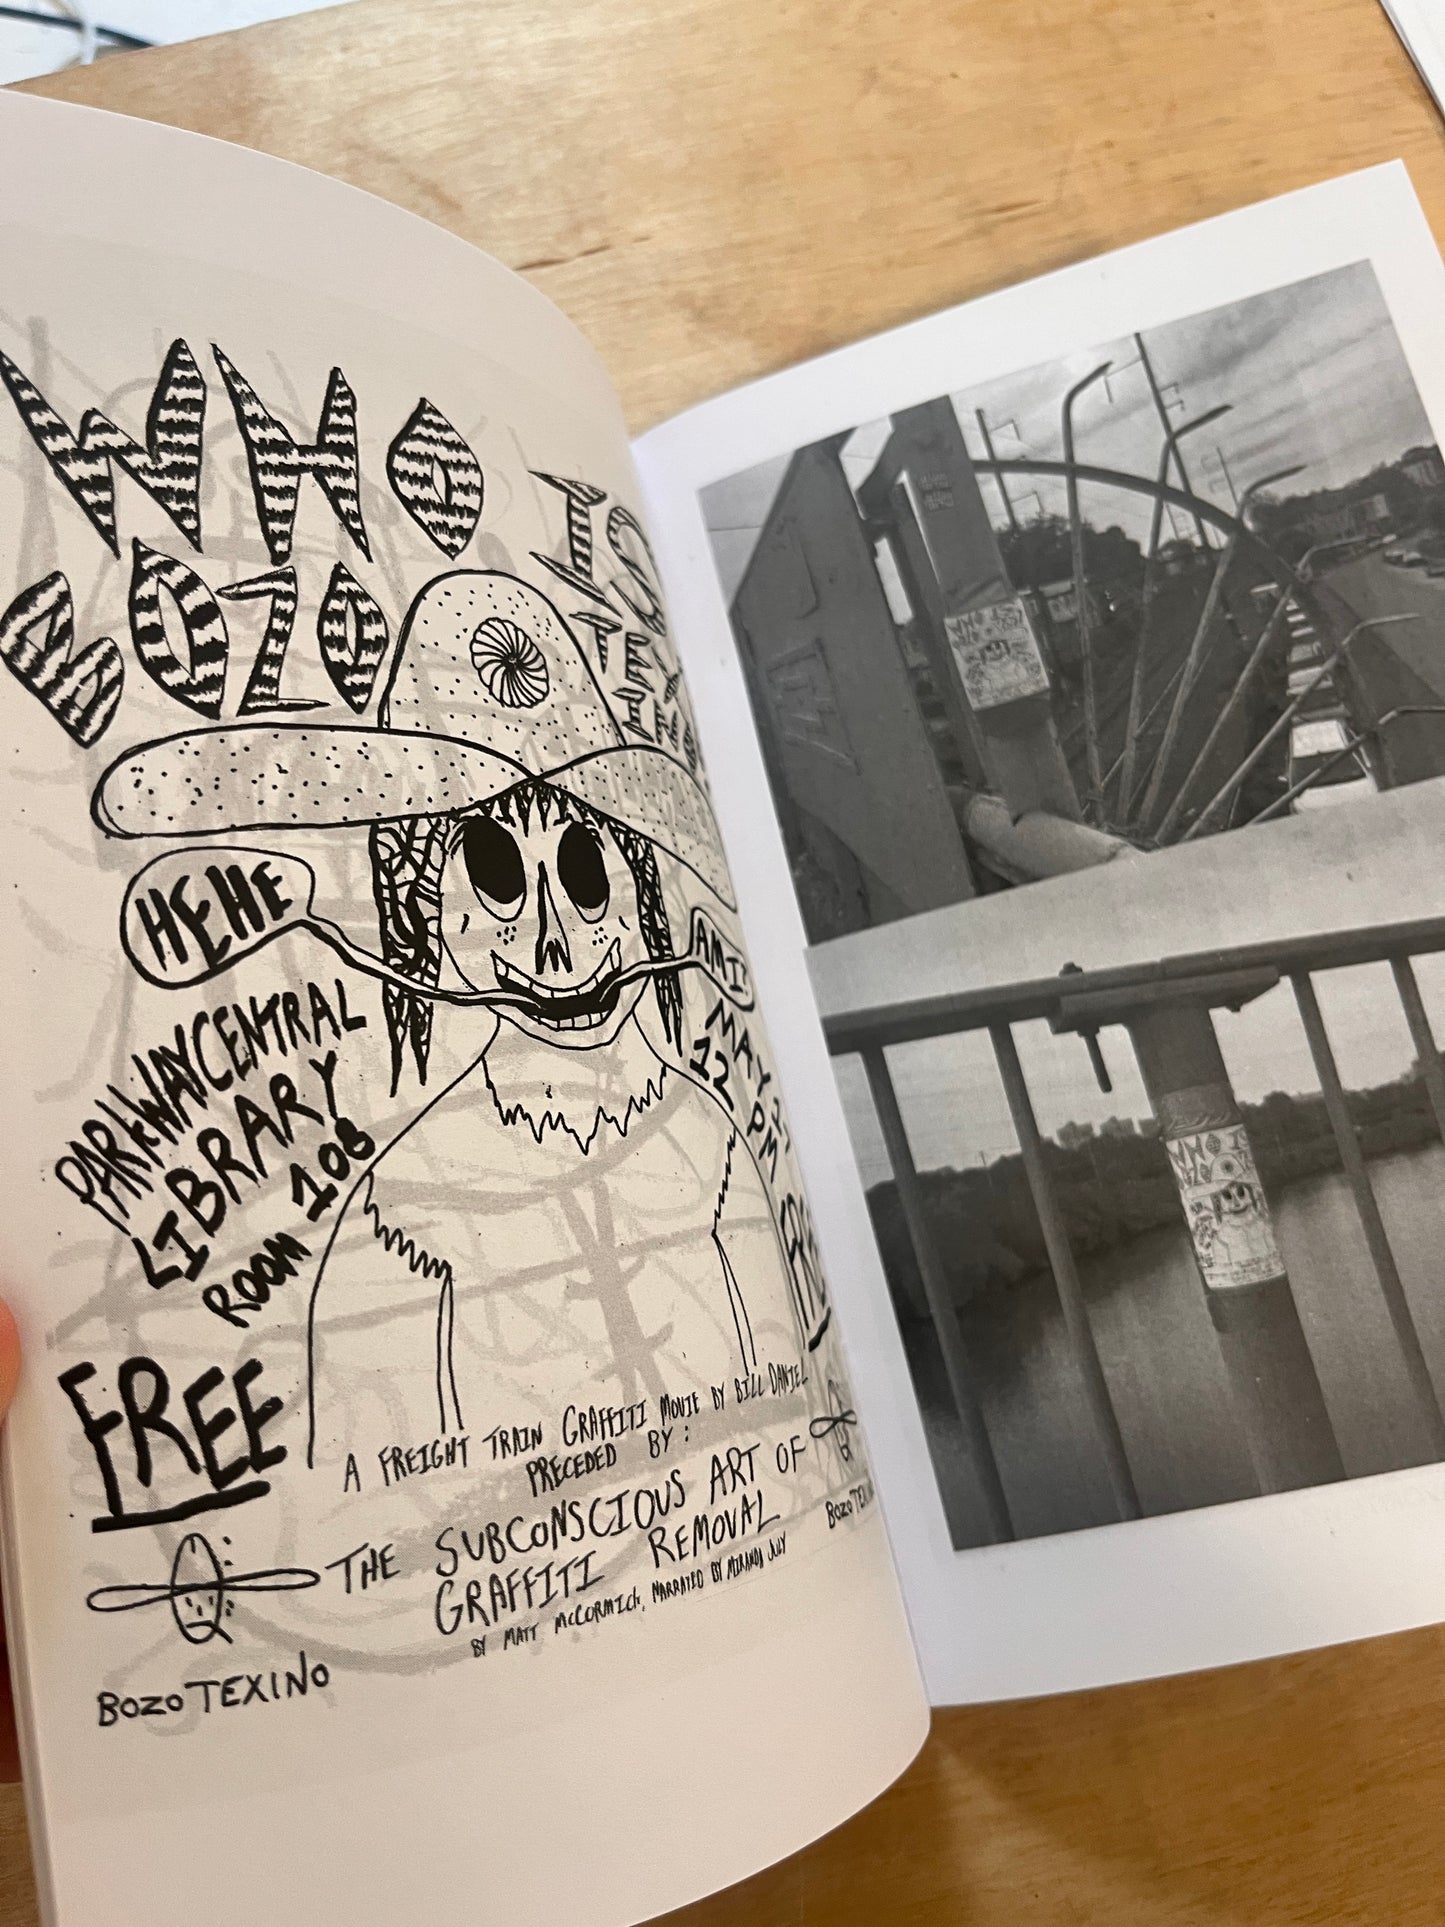 WHO IS
BOZO
HEHE
AMI?
PARKWAY CENTRAL
LIBRARY
ROOM 108
MAY
12 PM
FREE
A FREIGHT TRAIN GRAFFITI MOVIE BY BILL DANIEL
PRECEDED BY:
THE SUBCONSCIOUS ART OF
GRAFFITI REMOVAL
BY MATT McCORMICK, NARRATED BY MIRANDA JULY
BOZO TEXINO
BOZO TEXINO
WHO
BOZO